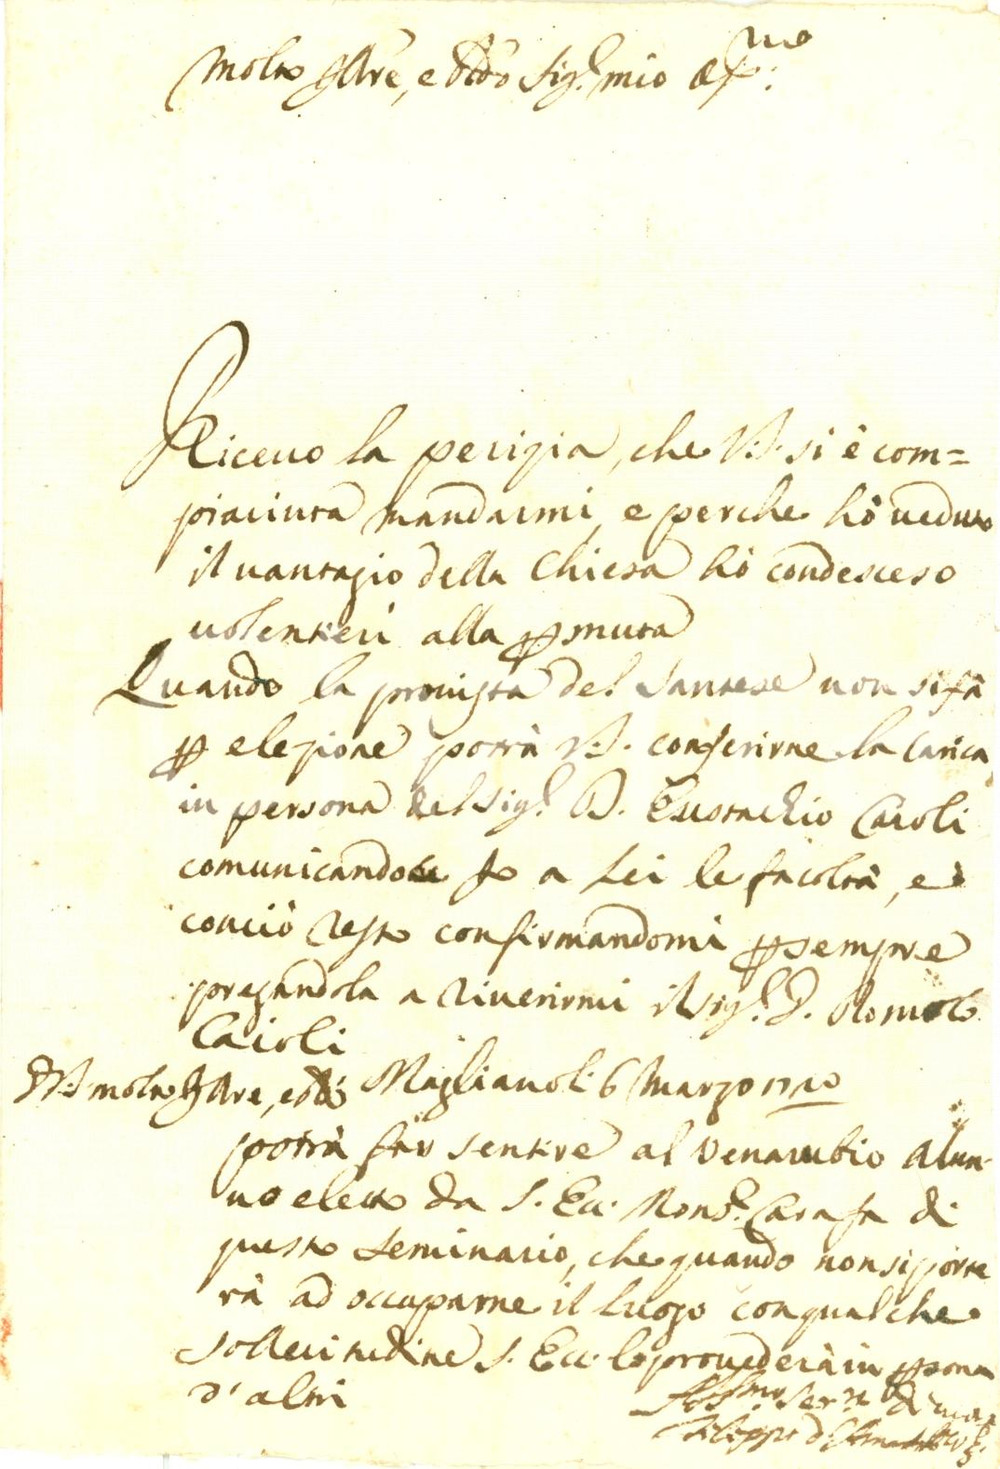 Molto Illre, e Rdo Sigr mio Ossmo
Riceuo la perizia, che V.S. si è com=
piaciuta mandarmi, e perche hò ueduto
il uantagio della Chiesa hò condesceso
uolentieri alla permuta
Quando la prouista del Santese non si fà
per elezione potrà V.S. conferirne la Carica
in persona del Sigr D. Eustachio Caioli
comunicandone Io a Lei le facoltà, e
conciò resto confirmandomi per sempre
pregandola a riuerirmi il Sigr D. Romolo
Caioli
D V.S. molto Illre, e Magliano li 6 Marzo
potrà far sentire al Alun-
no eletto da S. Ecc. Monsr Carafa di
questo Seminario, che quando non si porte
rà ad occuparne il luogo con qualche
sollecitudine S. Ecc. lo prouederà in persona
d'altri
Serre
Filippo